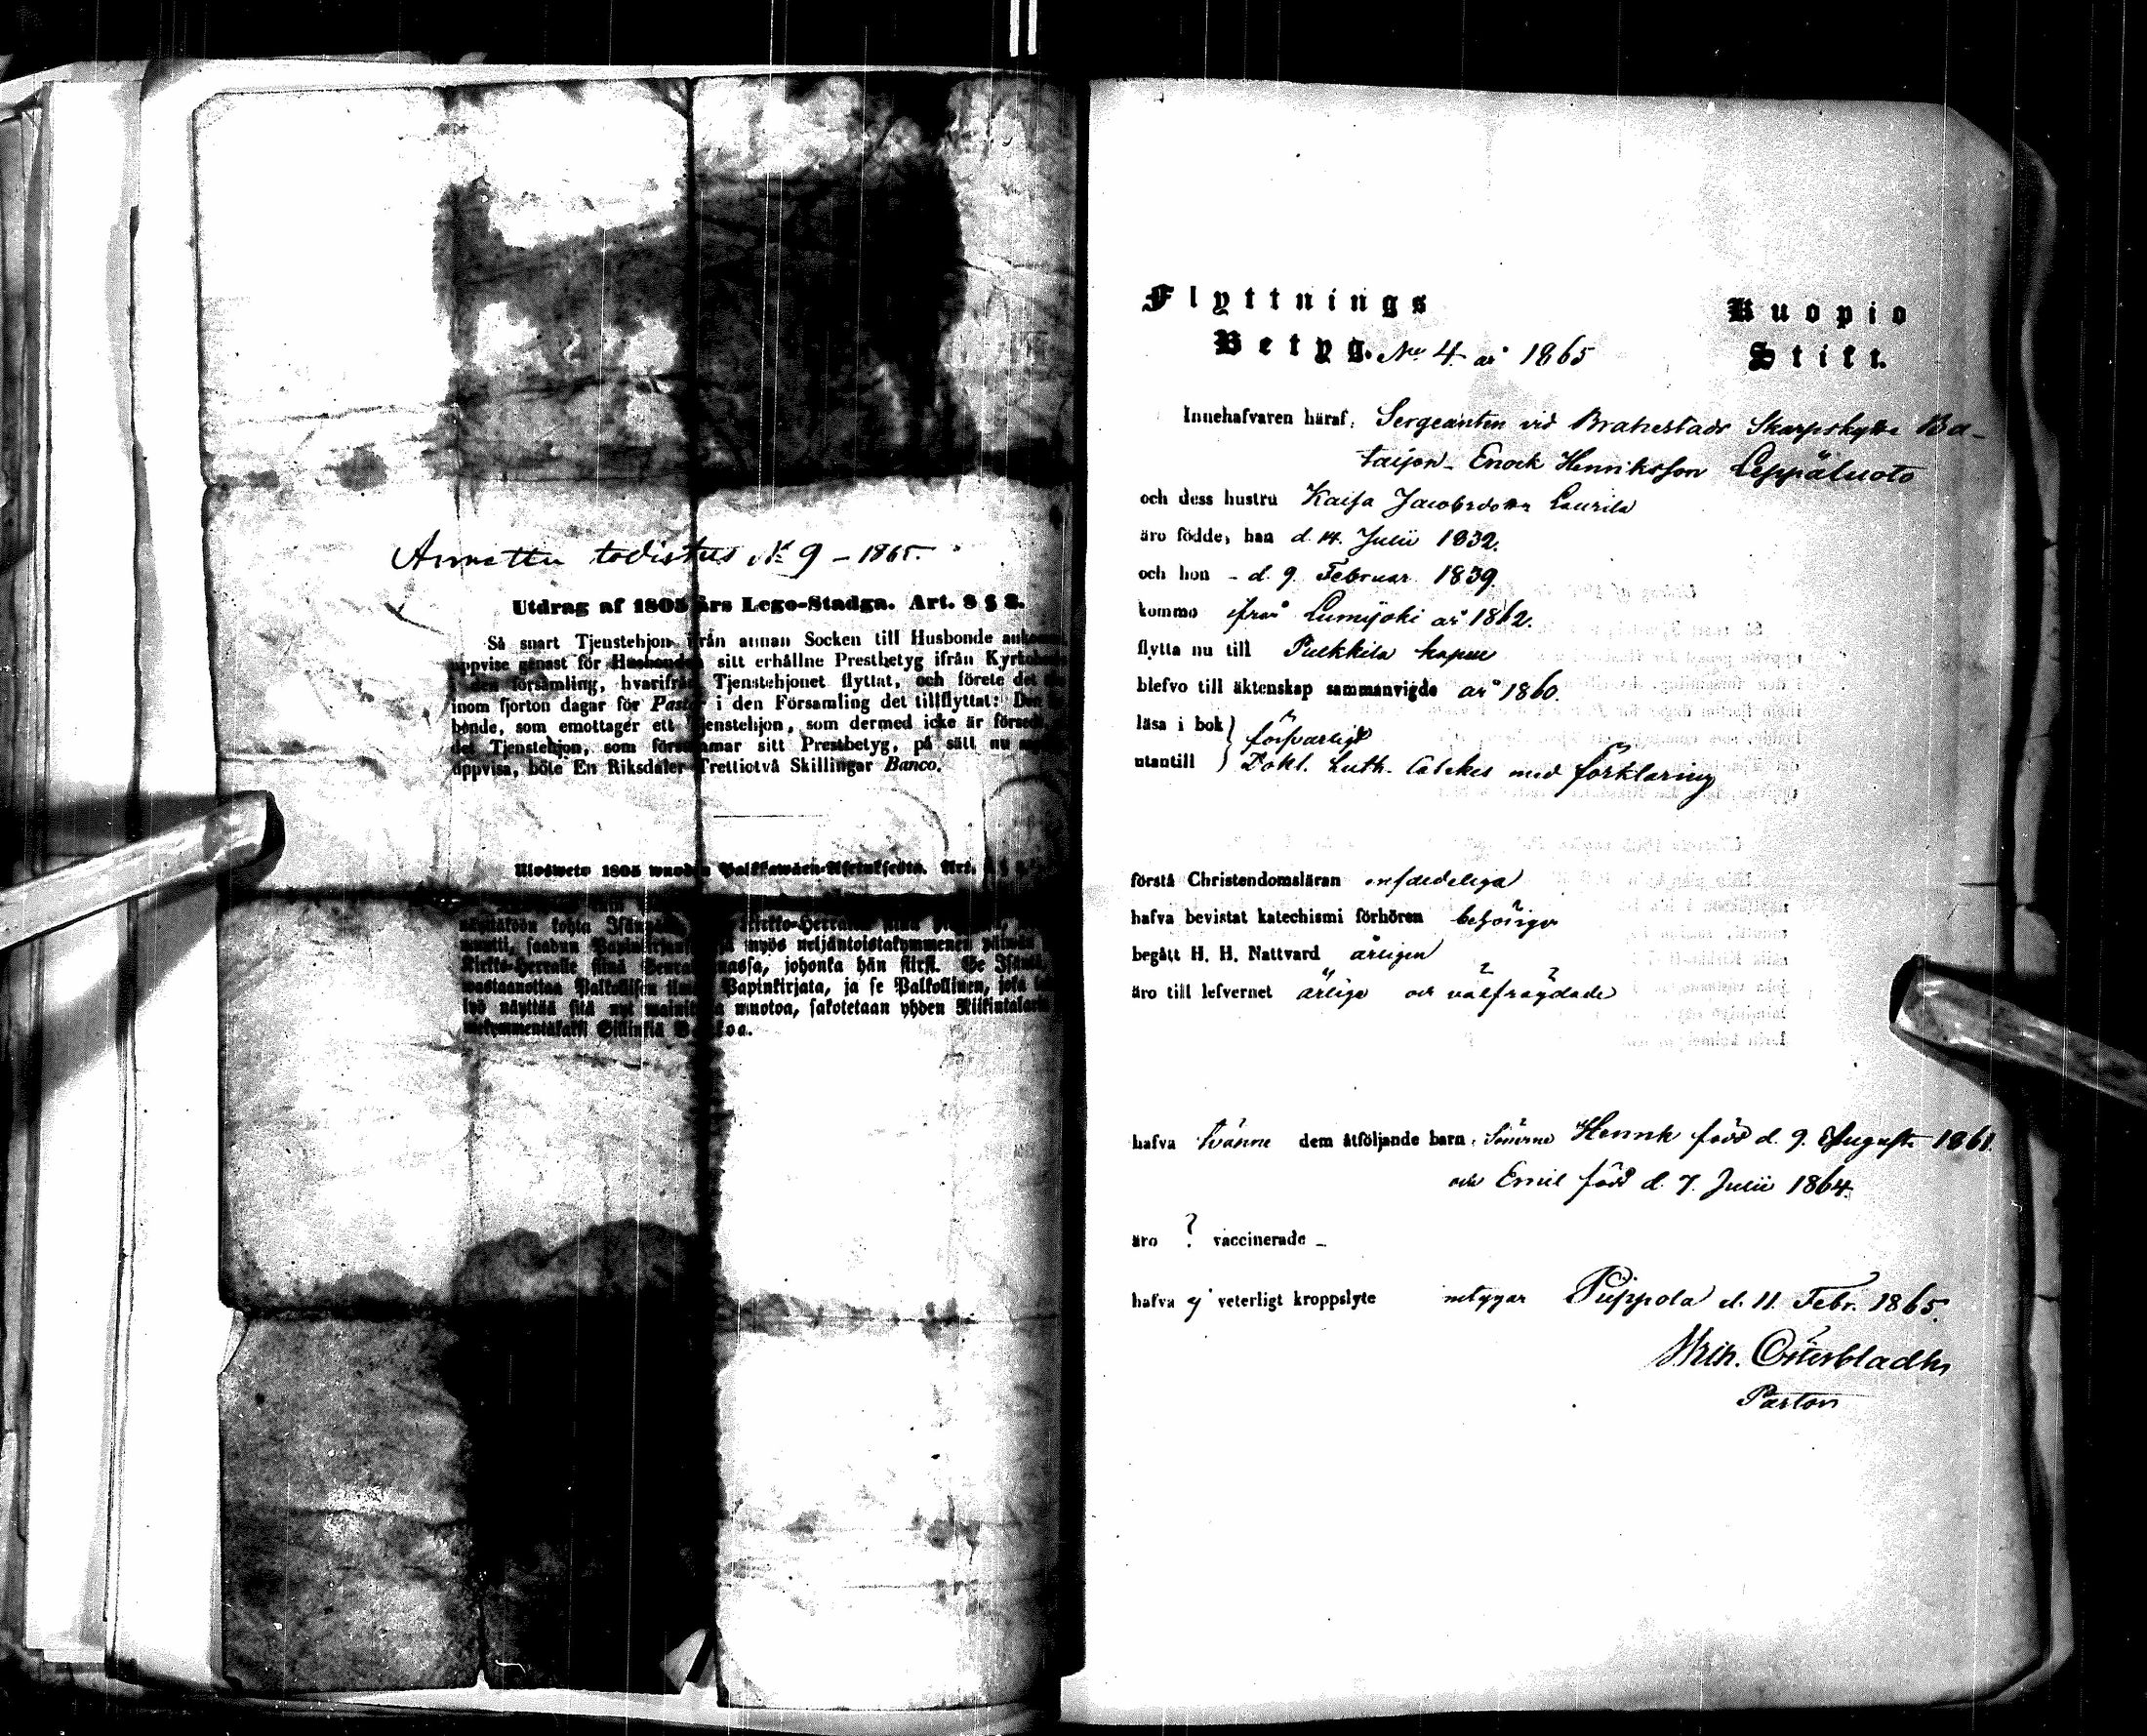 Armettu todistus No 9 – 1865.
Utdrag af 1805 års Lego-Stadga. Art. 8 § 2.
Så snart Tjenstehjon ifrån annan Socken till Husbonde
uppvise genast för Husbonden sitt erhållne Prestbetyg ifrån
i den församling, hvarifrån Tjenstehjonet flyttat, och förete det
inom fjorton dagar för Pastor i den Församling det tillflyttat:
bonde, som emottager ett Tjenstehjon, som dermed icke är
det Tjenstehjon, som försummar sitt Prestbetyg, på sätt nu
uppvisa, böte En Riksdaler Trettiotvå Skillingar Banco.
Ulosweto 1805 wuoden Palkkawäen-Asetuksesta. Art.
näyttäköön kohta
muutti, saadun myös neljäntoistakymmenen päiwän
Kirkko-Herralle siinä johonka hän siirsi.
wastaanottaa Palkollisen ilman Papinkirjata, ja se Palkollinen, joka
lyö näyttää sitä nyt muotoa, sakotetaan yhden
Flyttnings
Kuopio
Betyg. No 4. år 1865
Stift.
Innehafvaren häraf, Sergeanten vid Brahestads Skarpskytte Ba-
taljon- Enock Henriksson Leppäluoto
och dess hustru Kaisa Jacobsdotter Laurila
äro födde, han d. 14. Julii 1832.
och hon - d. 9. Februar. 1839.
kommo från Lumijoki år 1862.
flytta nu till Pulkkila kapell
blefvo till äktenskap sammanvigde år 1860.
läsa i bok } försvarligt
utantill } Dokt. Luth. Catekes med förklaring
förstå Christendomsläran enfaldeliga
hafva bevistat katechismi förhören behörigen
begått H. H. Nattvard årligen
äro till lefvernet ärlige och välfrägdade
hafva tvänne dem åtföljande barn, Sönerne Henrik född d. 9. Augusti 1861.
och Emil född d. 7. Julii 1864.
äro ? vaccinerade -
hafva ej veterligt kroppslyte intygar Piippola d. 11. Febr. 1865.
Österbladh
Pastor